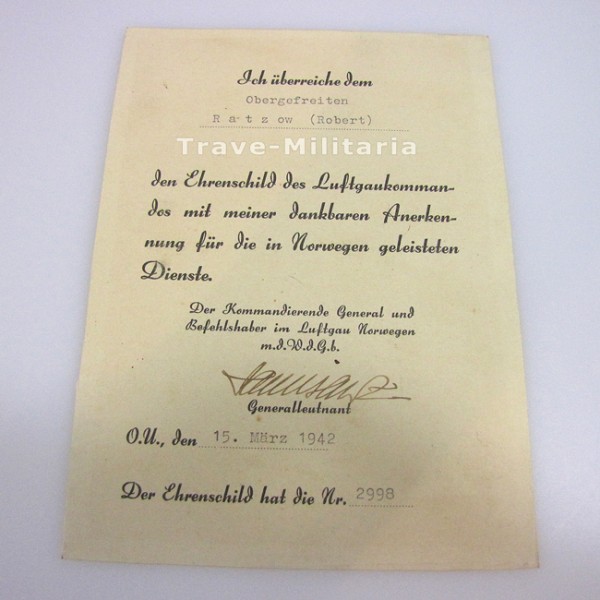 Ich überreiche dem
Obergefreiten
Ratzow (Robert)
Trave-Militaria
den Ehrenschild des Luftgaukomman-
dos mit meiner dankbaren Anerken-
nung für die in Norwegen geleisteten
Dienste.
Der Kommandierende General und
Befehlshaber im Luftgau Norwegen
m.d.W.d.G.b.
Generalleutnant
O.U., den 15. März 1942
Der Ehrenschild hat die Nr. 2998